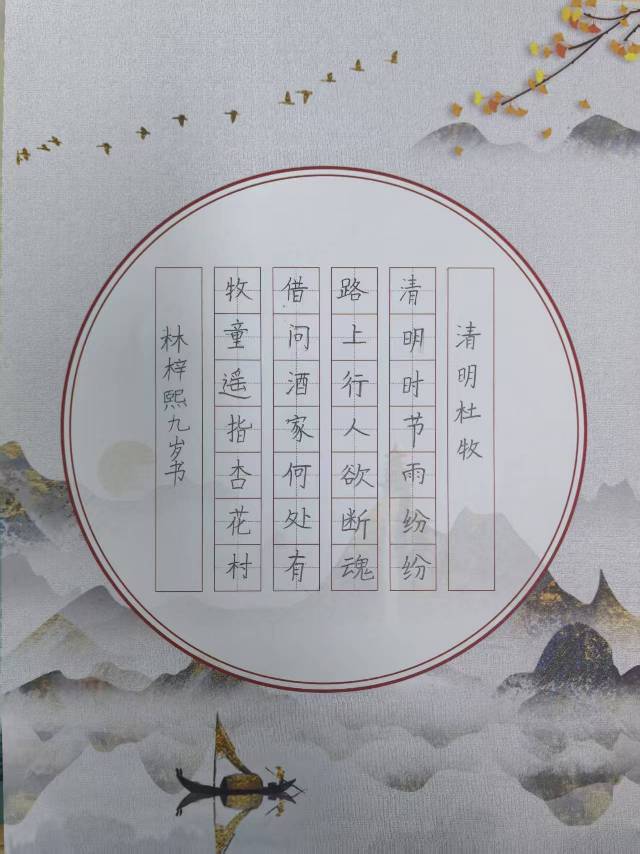 清明杜牧
清明时节雨纷纷
路上行人欲断魂
借问酒家何处有
牧童遥指杏花村
林梓熙九岁书